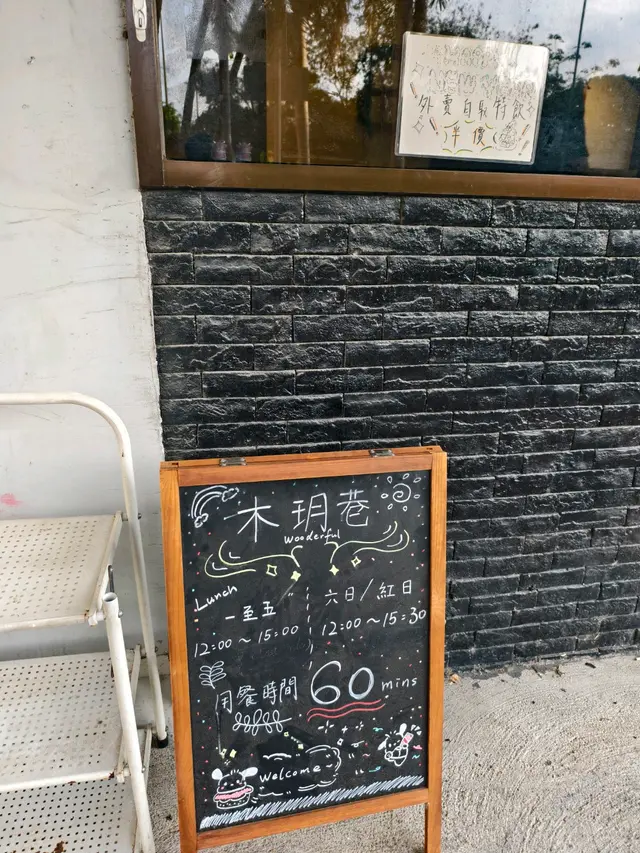 外賣自取特飲
半價
木玥巷
Wooderful
Lunch
一至五
12:00～15:00
六日/紅日
12:00～15:30
用餐時間 60 mins
Welcome